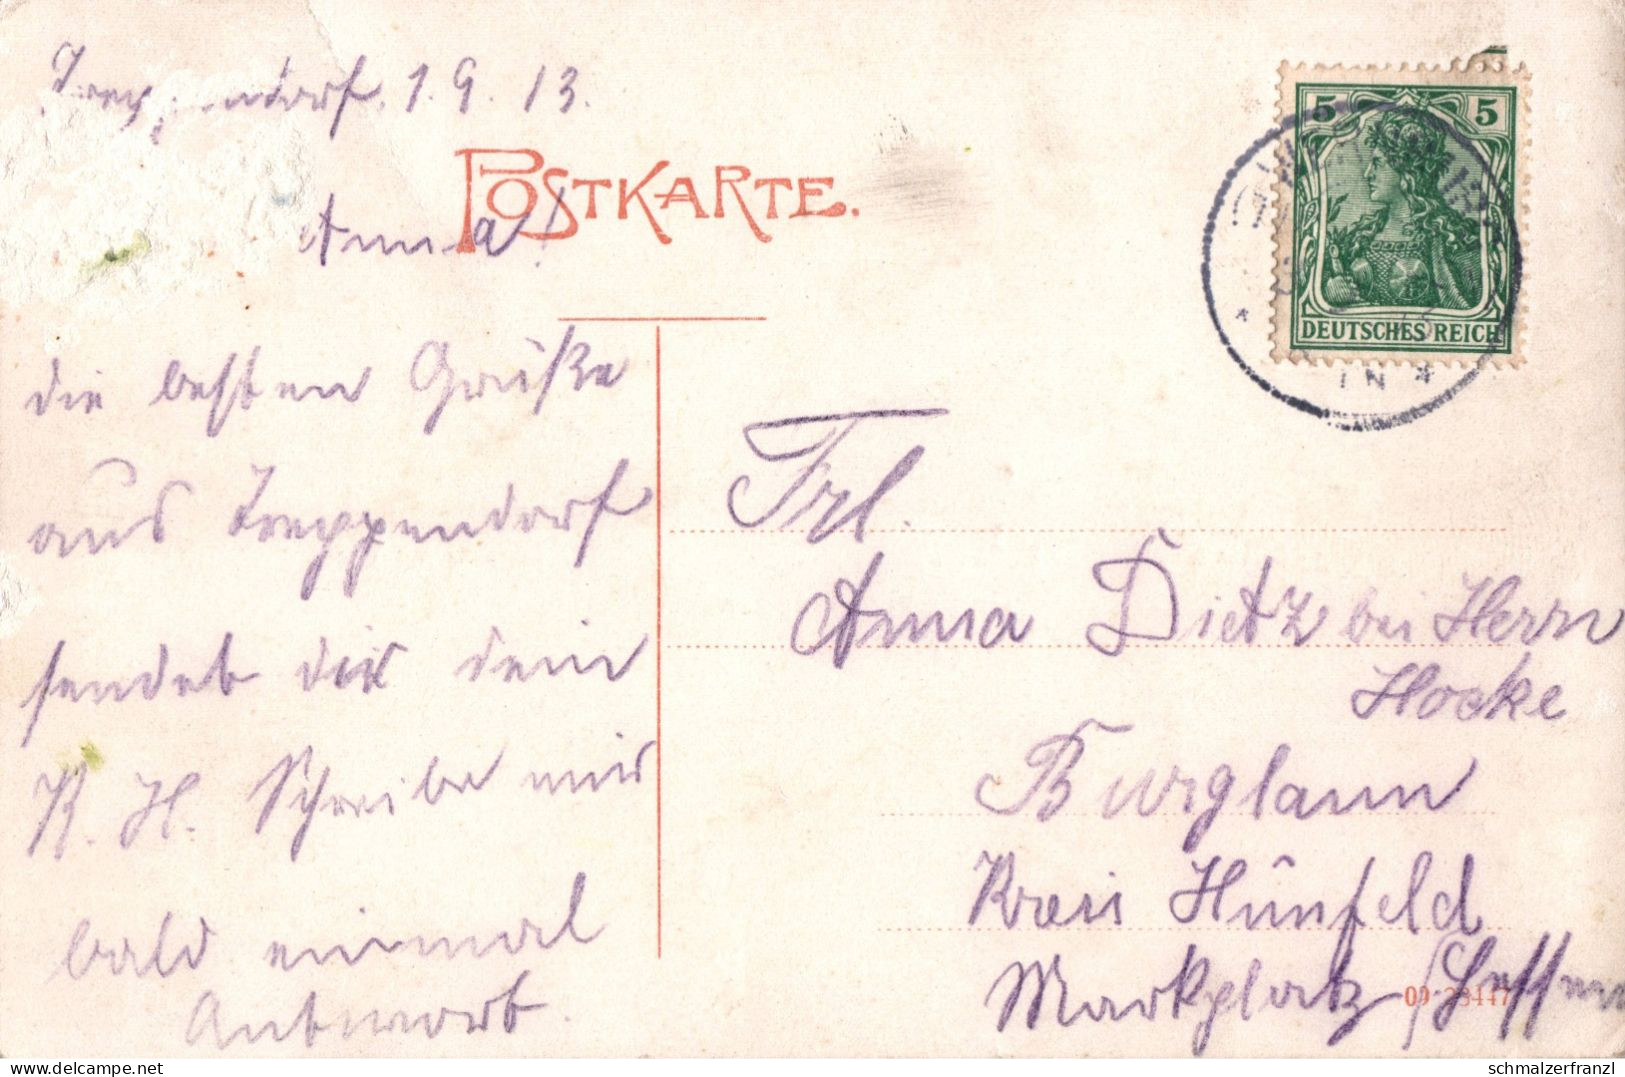 Treppendorf, 1.9.13.
POSTKARTE.
Anna!
die besten Grüße
aus Treppendorf
sendet dir dein
K. H. Schreibe mir
bald einmal
Antwort.
5 5
DEUTSCHES REICH
Frl.
Anna Dietz bei Herrn
Hocke
Burglaun
Kreis Hünfeld
Markplatz (Hessen
09 23447
schmalzerfranzl